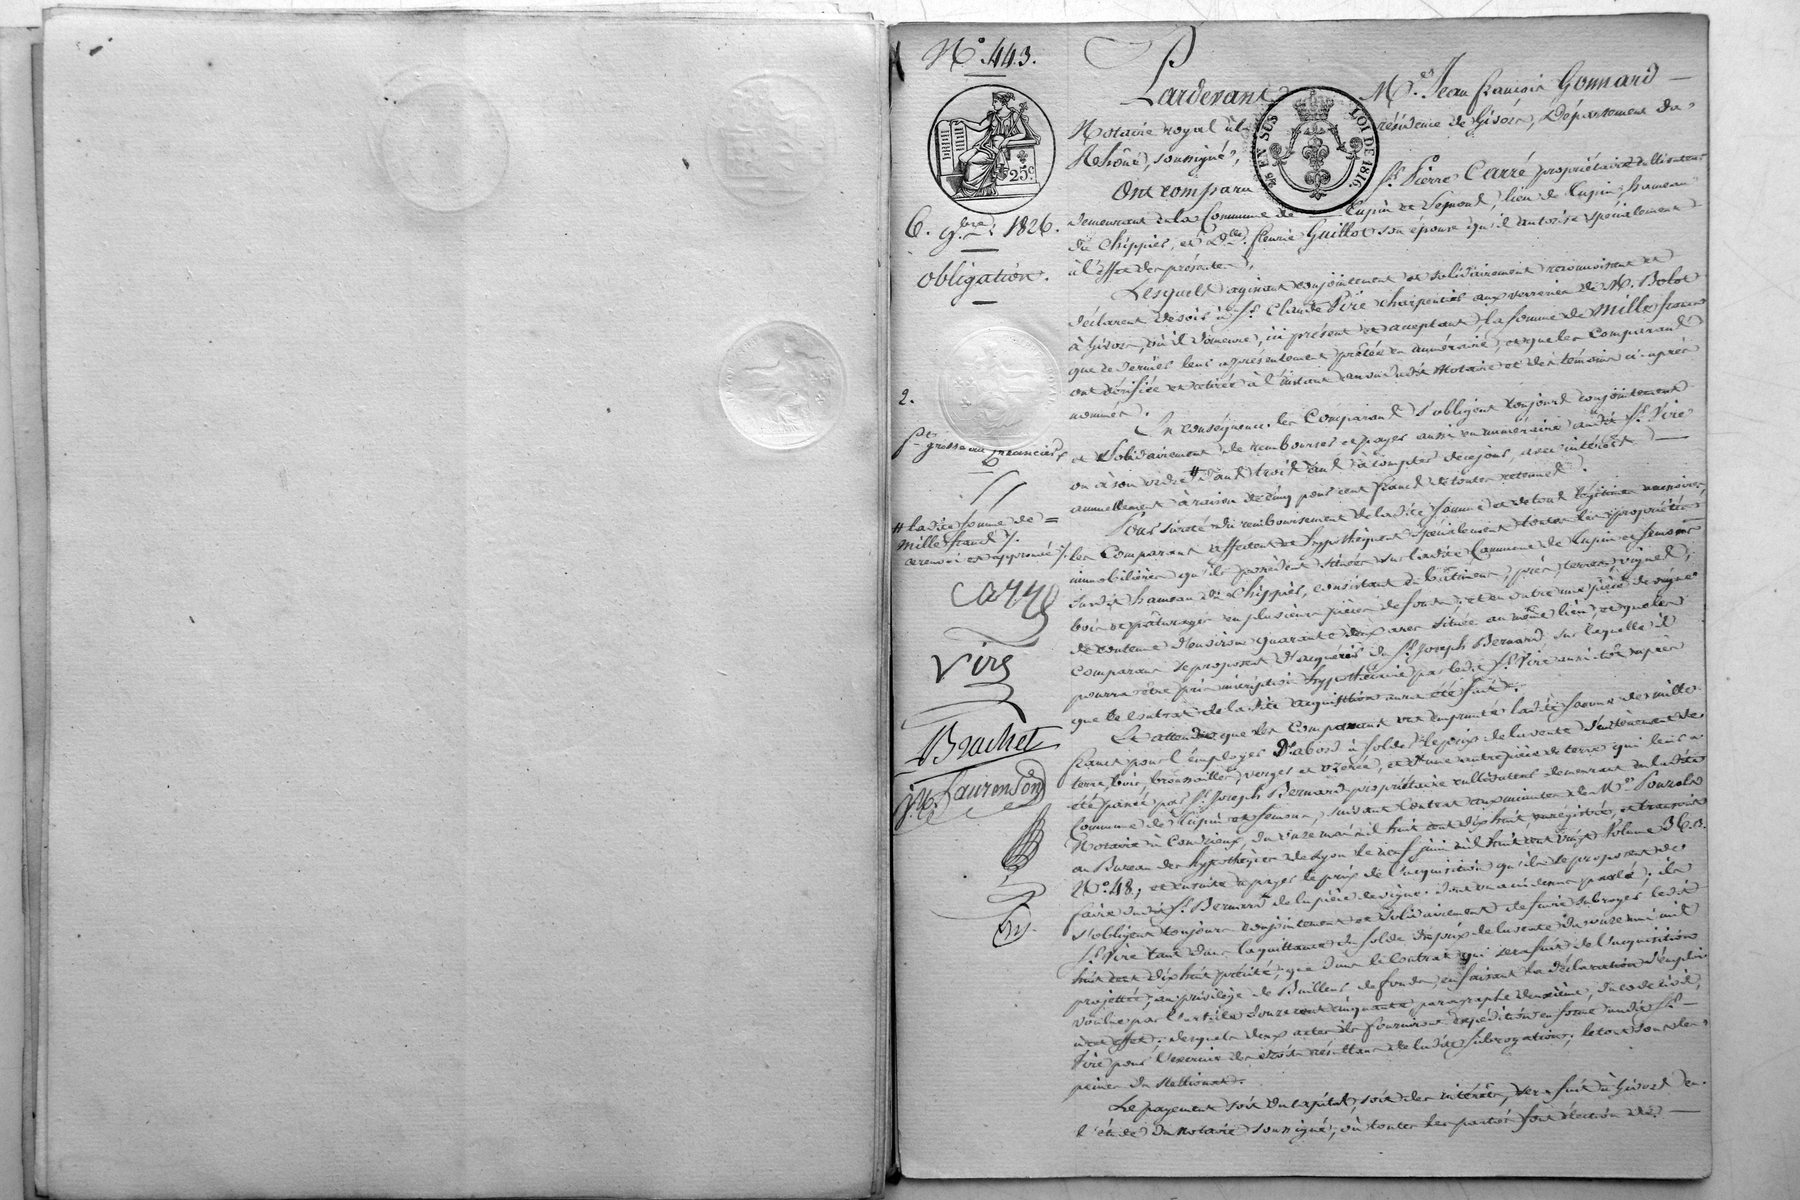 N.° 443.
25c
6. 9bre. 1826.
obligation.
2.
# ladite somme de =
mille francs ./.
Carré
Vire
Brachet
Laurenson
EN SUS LOI DE 1816.
Pardevant Me. Jean François Gonnard
Notaire royal à la résidence de Givors, Département du
Rhône, soussigné,
Ont comparu Sr. Pierre Carré propriétaire cultivateur
demeurant en la Commune de Tupin et Semond, lieu de Tupin, hameau
du Chippier, et Dlle. fleurie Guillot son épouse qu'il autorise spécialement
à l'effet des présentes,
Lesquels agissant conjointement et solidairement reconnoissent et
déclarent devoir à Sr. Claude Vire charpentier aux verreries de M. Bolot
à Givors, où il demeure, ici présent et acceptant, la somme de mille francs
que ce dernier leur a présentement prêtée en numéraire, et que les Comparants
ont vérifiée et retirée à l'instant au vu dudit Notaire et des témoins ci-après
nommés.
En conséquence les Comparants s'obligent toujours conjointement
et solidairement de rembourser et payer aussi en numéraire audit Sr. Vire
ou à son ordre # dans trois ans à compter de ce jour, avec intérêts
annuellement à raison de cinq pour cent francs de toutes retenues.
Pour sûreté du remboursement de ladite somme et de tous légitimes accessoires,
les Comparants affectent et hypothèquent spécialement toutes les propriétés
immobilières qu'ils possèdent situées sur ladite Commune de Tupin et Semond
susdit hameau du Chippier, consistant en bâtiment, prés, terres, vignes,
bois et pâturages en plusieurs pièces de fonds; et en outre une pièce de vigne
de contenue d'environ quarante deux ares située au même lieu et que les
Comparants se proposent d'acquérir du Sr. Joseph Bernard sur laquelle il
pourra être pris inscription hypothécaire par ledit Sr. Vire aussitôt après
que le contrat de ladite acquisition aura été fait.
Et attendu que les Comparants ont emprunté ladite somme de mille
francs pour l'employer d'abord à solder le prix de la vente d'un tènement de
terre, bois, broussailles, verger et et d'une autre pièce de terre qui leur a
été passée par Sr. Joseph Bernard propriétaire cultivateur demeurant en ladite
Commune de Tupin et Semons, suivant Contrat aux minutes de Me.
Notaire à Condrieux, du onze mai mil huit cent dix huit, enregistré, et transcrit
au Bureau des hypothèques de Lyon le neuf juin mil huit cent vingt Volume 36.
N.° 48, et ensuite à payer le prix de l'acquisition qu'ils se proposent de
faire dudit Sr. Bernard de la pièce de vigne dont on a ci-dessus parlé; ils
s'obligent toujours conjointement et solidairement de faire subroger ledit
Sr. Vire tant dans la quittance du solde du prix de la vente du onze mai mil
huit cent dix huit précité, que dans le Contrat qui sera fait de l'acquisition
projettée, au privilège de Bailleur de fonds, en faisant la déclaration d'emploi
voulue par l'article douze cent cinquante paragraphe deuxième, du code civil,
à cet effet; desquels deux actes ils fourniront expédition en forme audit Sr.
Vire pour l'exercice des droits résultant de ladite subrogation; le tout sous les
peines du stellionat.
Le payement soit du capital, soit des intérêts, sera fait à Givors en
l'étude du notaire soussigné, où toutes les parties font élection de